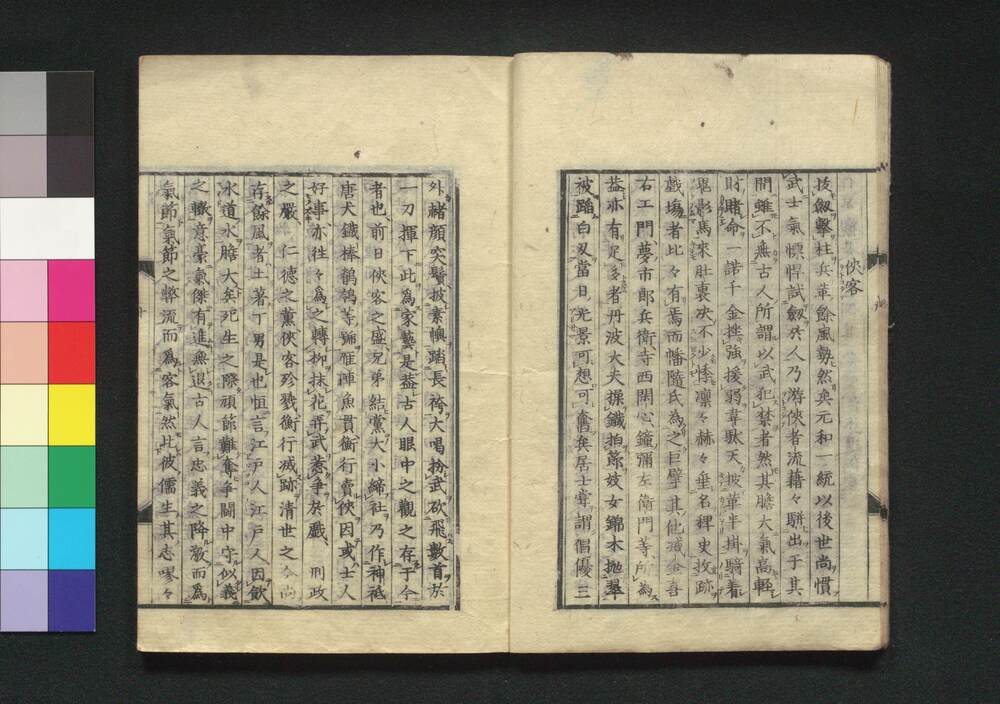 俠客
拔劔擊柱兵革餘風勢然矣元和一統以後世尚慣
武士氣慓悍試劔於人乃游俠者流藉々駢出于其
間雖不無古人所謂以武犯禁者然其膽大氣高輕
財賭命一諾千金挫強援弱韋駄天披華半掛騎着
鬼影馬來肚裏决不少悸凜々赫々垂名稗史扠跡
戲塲者比々有焉而幡隨氏為之巨擘其他
右工門夢市郎兵衛寺西閑心鐘彌左衛門等所為
益亦有足多者丹波大夫操鐵拍節妓女錦木拋翠
被踏白刃當日光景可想可舊兵居士嘗謂倡優三
外赭顏突鬢披素襖踏長袴大喝扮武砍飛數首於
一刀揮下此為家藝是蓋古人眼中之觀之存于今
者也前日俠客之盛兄弟結黨大小締社乃作神祇
唐犬鐵棒鶺鴒等號雁陣魚貫衡行賣俠因或士人
好事亦往々為之轉柳抹花弄武惹爭於戲 刑政
之嚴 仁德之薰俠客殄戮衡行滅跡清世之今尚
存餘風者土著丁男是也恒言江戶人江戶人因飲
水道水膽大矣死生之際頑節難奪爭鬪中守似義
之轍意豪氣傑有進無退古人言忠義之降激而為
氣節氣節之弊流而為客氣然比彼儒生其志嘐々